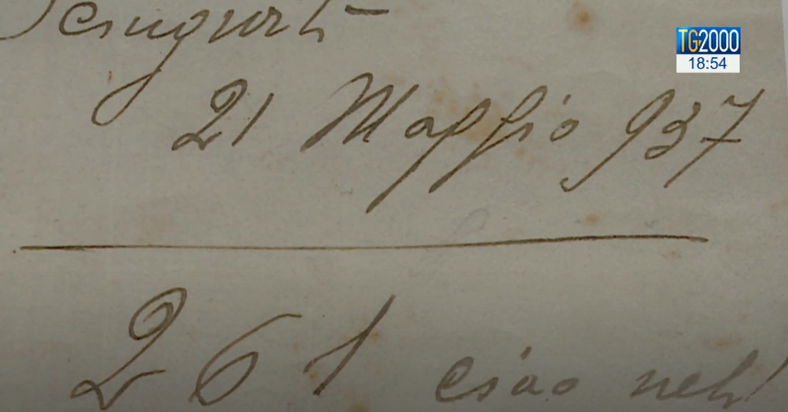 TG2000
18:54
21 Maggio 937
261 ciao neh!